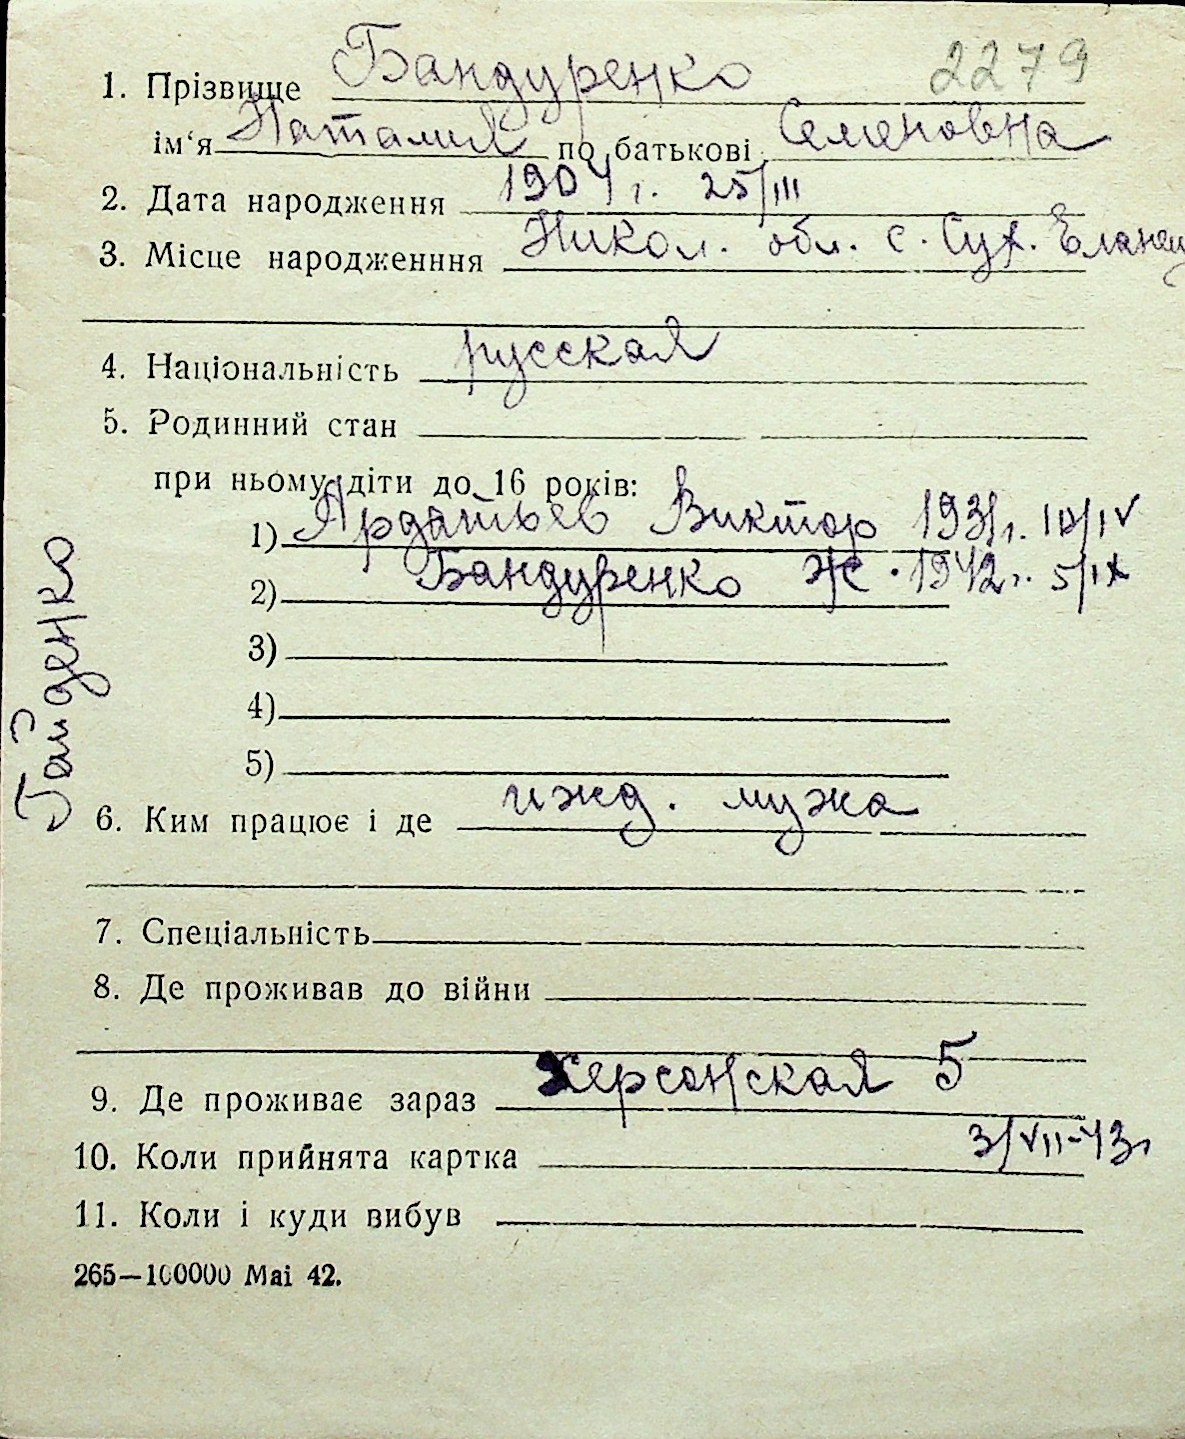 2279
1. Прізвище Бандуренко
ім'я Наталия по батькові Семеновна
2. Дата народження 1904 г. 25/III
3. Місце народженння Никол. обл. с. Сух. Еланец
4. Національність русская
5. Родинний стан
при ньому діти до 16 років:
1) Ардатьев Виктор 1931г. 10/IV
2) Бандуренко Ж. 1942г. 5/IX
3)
4)
5)
Гайденко
6. Ким працює і де ижд. мужа
7. Спеціальність
8. Де проживав до війни
9. Де проживає зараз Херсонская 5
10. Коли прийнята картка 3/VII-43г
11. Коли і куди вибув
265—100000 Mai 42.